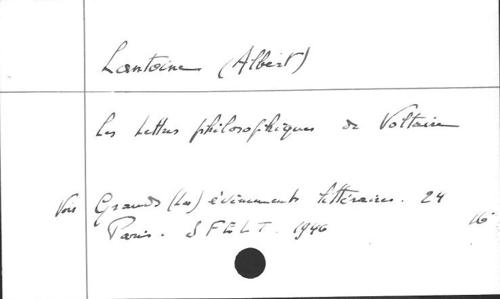 Lantoine (Albert)
Les Lettres philosophiques de Voltaire
Voir Grands (Les) évènements littéraires. 24
Paris. SFELT. 1946 16°